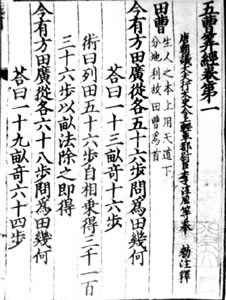 五曹筭經卷第一
唐朝議大夫行太史令上輕車都尉臣李淳風等奉 勅注釋
田曹 生人之本上用天道下
分地利故田曹爲首
今有方田廣從各五十六步問爲田幾何
荅曰一十三畝奇十六步
術曰列田五十六步自相乘得三千一百
三十六步以畝法除之即得
今有方田廣從各六十八步問爲田幾何
荅曰一十九畝奇六十四步